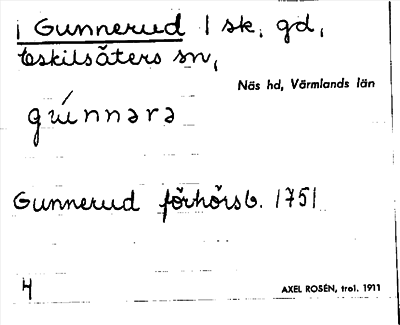 i Gunnerud 1 sk. gd,
Eskilsäters sn,
Näs hd, Värmlands län
gúnnərə
Gunnerud förhörsb. 1751
4
AXEL ROSÉN, trol. 1911